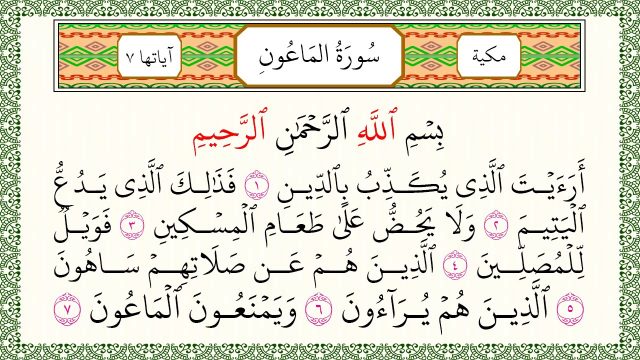 مكية سُورَةُ المَاعُونِ آياتها ٧
بِسْمِ ٱللَّهِ ٱلرَّحْمَٰنِ ٱلرَّحِيمِ
أَرَءَيْتَ ٱلَّذِى يُكَذِّبُ بِٱلدِّينِ ١ فَذَٰلِكَ ٱلَّذِى يَدُعُّ
ٱلْيَتِيمَ ٢ وَلَا يَحُضُّ عَلَىٰ طَعَامِ ٱلْمِسْكِينِ ٣ فَوَيْلٌ
لِّلْمُصَلِّينَ ٤ ٱلَّذِينَ هُمْ عَن صَلَاتِهِمْ سَاهُونَ
٥ ٱلَّذِينَ هُمْ يُرَآءُونَ ٦ وَيَمْنَعُونَ ٱلْمَاعُونَ ٧